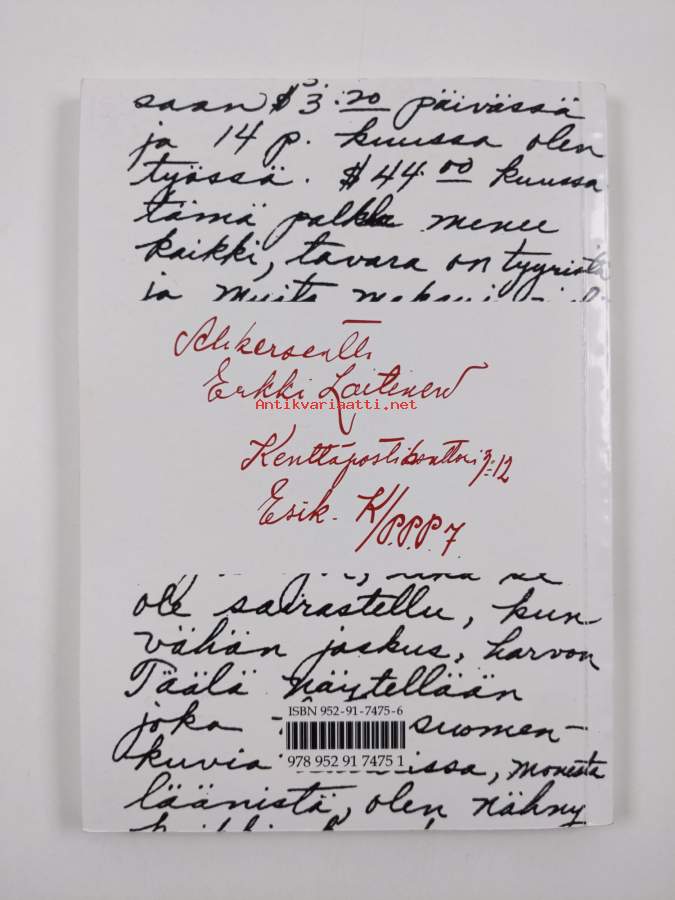 saan $3.20 päivässä
ja 14 p. kuussa olen
työssä. $44.00 kuussa
tämä palkka menee
kaikki, tavara on tyyristä
ja muita
Alikersantti
Erkki Laitinen
Antikvariaatti.net
Kenttäpostikonttori 3:12
Esik. K/P.P.P.7.
ole sairastellu, kun
vähän joskus, harvon
Täälä näytellään
joka suomen-
kuvia issa, monesta
läänistä, olen nähny
ISBN 952-91-7475-6
978 952 91 7475 1